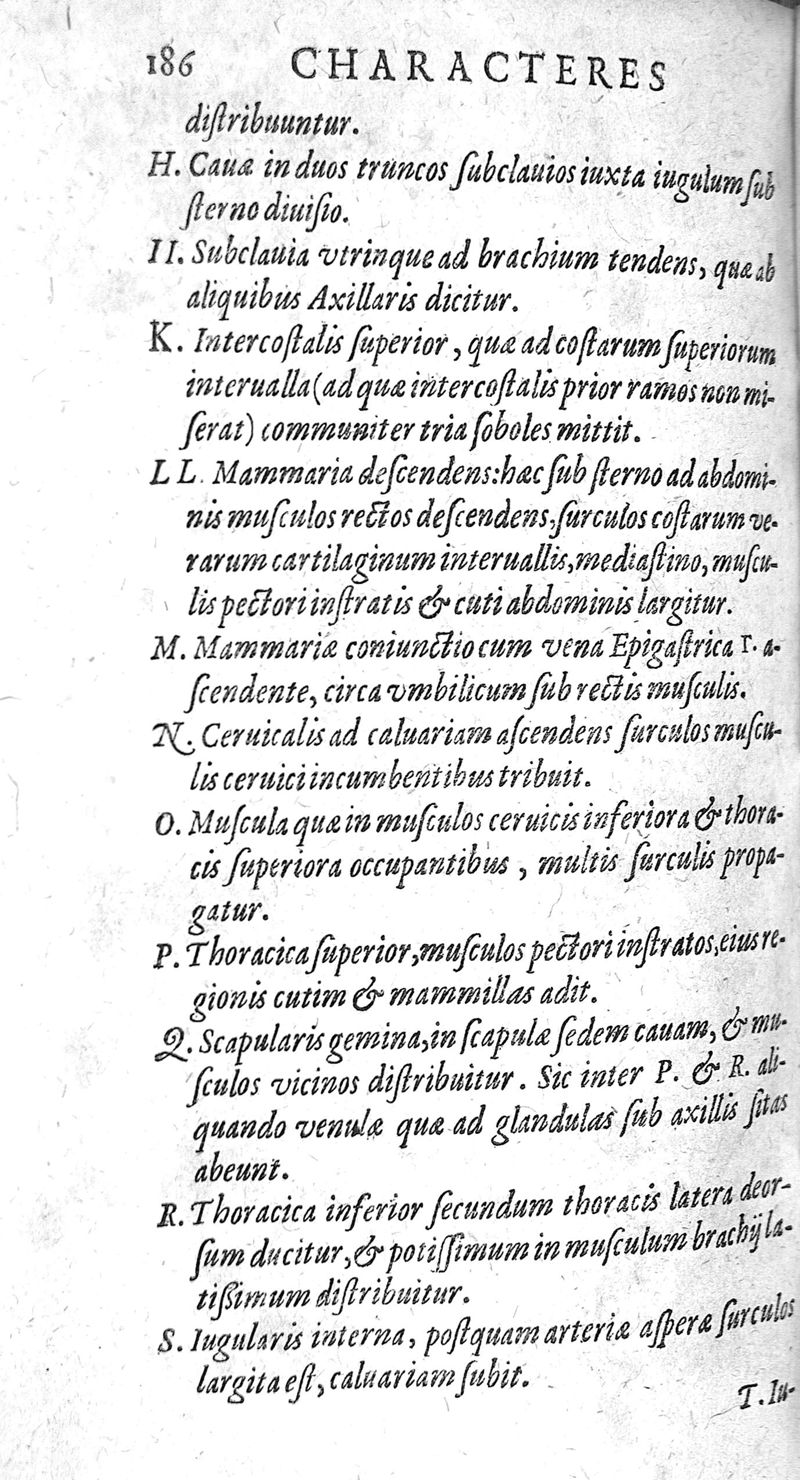 186 CHARACTERES
diſtribuuntur.
H. Cauæ in duos truncos ſubclauios iuxta iugulum ſub
ſterno diuiſio.
II. Subclauia vtrinque ad brachium tendens, quæ ab
aliquibus Axillaris dicitur.
K. Intercoſtalis ſuperior, quæ ad coſtarum ſuperiorum
interualla (ad quæ intercoſtalis prior ramos non mi-
ſerat) communiter tria ſoboles mittit.
L L. Mammaria deſcendens: hæc ſub ſterno ad abdomi-
nis muſculos rectos deſcendens, ſurculos coſtarum ve-
rarum cartilaginum interuallis, mediaſtino, muſcu-
lis pectori inſtratis & cuti abdominis largitur.
M. Mammariæ coniunctio cum vena Epigaſtrica Γ. a-
ſcendente, circa vmbilicum ſub rectis muſculis.
N. Ceruicalis ad caluariam aſcendens ſurculos muſcu-
lis ceruici incumbentibus tribuit.
O. Muſcula quæ in muſculos ceruicis inferiora & thora-
cis ſuperiora occupantibus, multis ſurculis propa-
gatur.
P. Thoracica ſuperior, muſculos pectori inſtratos, eius re-
gionis cutim & mammillas adit.
Q. Scapularis gemina, in ſcapulæ ſedem cauam, & mu-
ſculos vicinos diſtribuitur. Sic inter P. & R. ali-
quando venulæ quæ ad glandulas ſub axillis ſitas
abeunt.
R. Thoracica inferior ſecundum thoracis latera deor-
ſum ducitur, & potiſſimum in muſculum brachij la-
tiſſimum diſtribuitur.
S. Iugularis interna, poſtquam arteriæ aſperæ ſurculos
largita eſt, caluariam ſubit.
T. Iu-